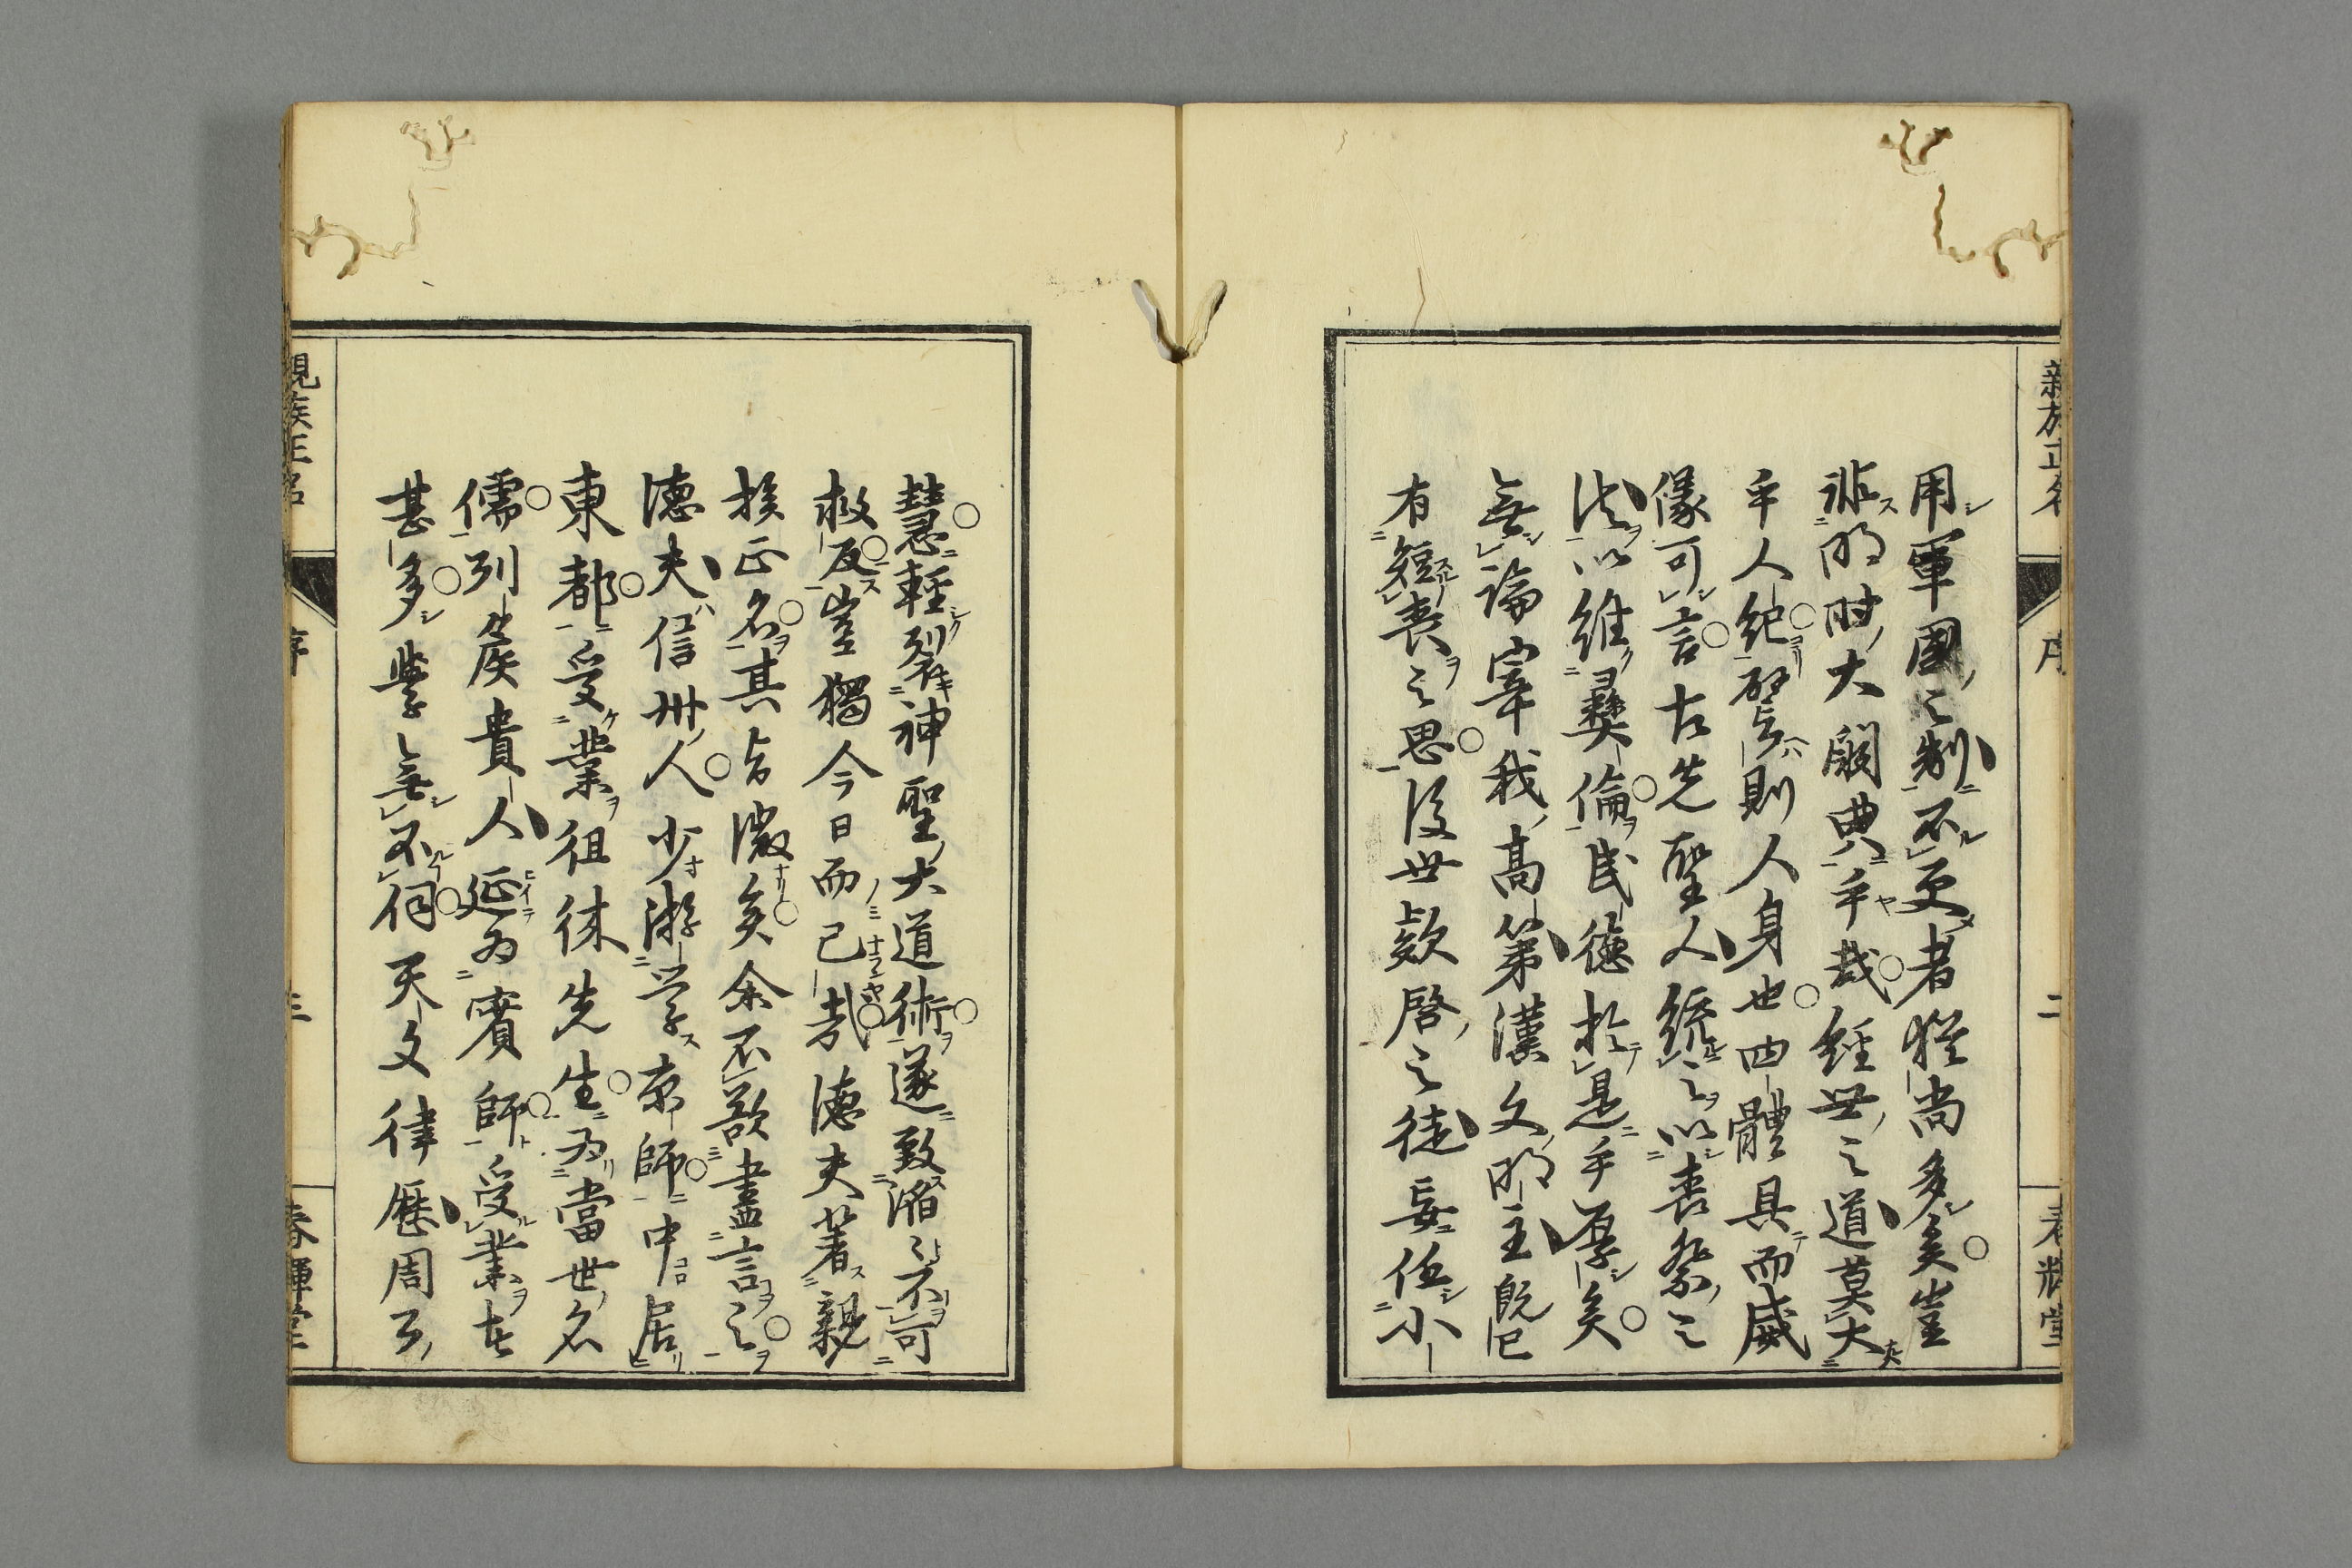 親族正名
序
二
春輝堂
用軍國之制不更者猶尚多矣豈
非明時大闕典乎哉經世之道莫大
乎人紀譬則人身也四體具而威
儀可言古先聖人統之以喪祭之
法以維彝倫民德於是乎厚矣
無論宰我高第漢文明主既已
有短喪之思後世欵啓之徒妄任小
慧輕裂神聖大道術遂致滔々不可
救反豈獨今日而已哉德夫著親
族正名其旨微矣余不敢盡言之
德夫信州人少游学京師中居
東都受業徂徠先生為當世名
儒列侯貴人延為賓師受業者
甚多学無不伺天文律曆周云
親族正名
序
三
春輝堂